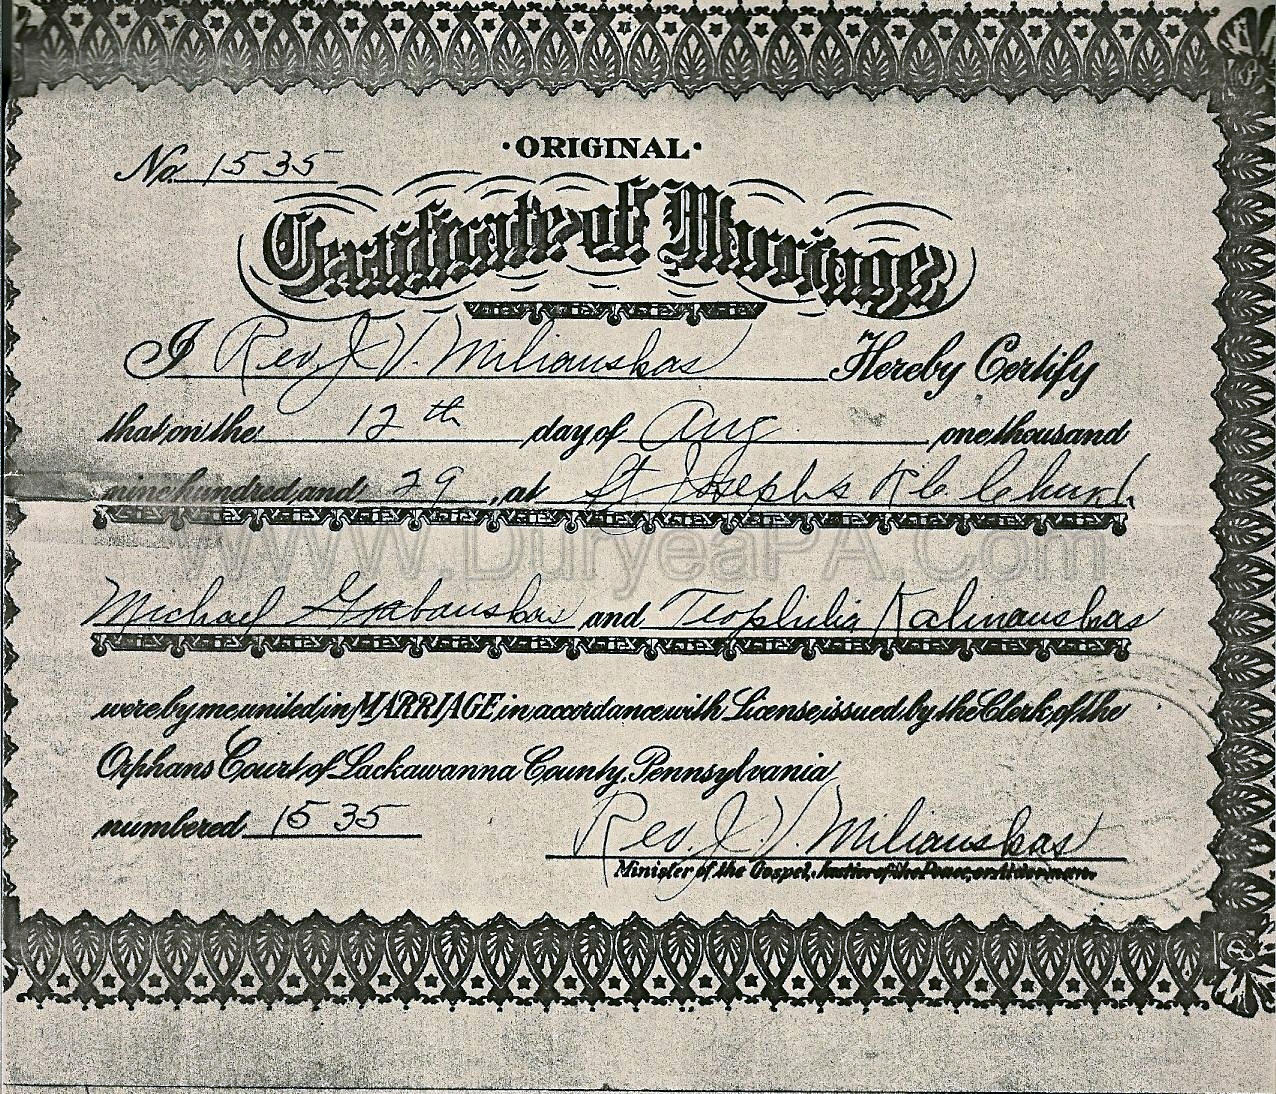 ·ORIGINAL·
No. 1535
Certificate of Marriage
I Rev. J. V. Milianskas Hereby Certify
that on the 12th day of Aug. one thousand
nine hundred and 29, at St Josephs R C Church
www.DuryeaPA.Com
Michael Grabauskas and Teophilia Kalinauskas
were by me united in MARRIAGE in accordance with License issued by the Clerk of the
Orphans Court of Lackawanna County, Pennsylvania
numbered 1535
Rev. J. V. Milianskas
Minister of the Gospel, Justice of the Peace, or Alderman.